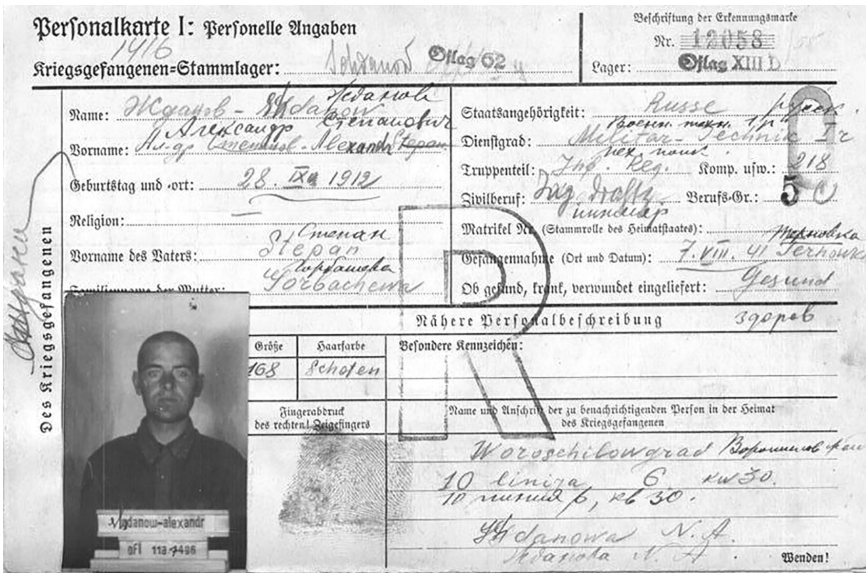 Personalkarte I: Personelle Angaben
1916
Kriegsgefangenen=Stammlager: Oflag 62
Beschriftung der Erkennungsmarke
Nr. 12058
Lager: Oflag XIII D
Des Kriegsgefangenen
Name: Жданов - Жданов
Александр Степанович
Vorname: Alexandr Stepan
Geburtstag und =ort: 28. IX. 1912
Religion:
Степан
Vorname des Vaters: Stepan
Горбачева
Familienname der Mutter: Gorbachewa
Staatsangehörigkeit: Russe
Dienstgrad: Militär-Technik I r
Truppenteil: Inf. Reg. Komp. usw.: 218
Zivilberuf: Berufs=Gr.: 5
Matrikel Nr. (Stammrolle des Heimatstaates):
Терновка
Gefangennahme (Ort und Datum): 7. VIII. 41 Ternowka
Ob gesund, krank, verwundet eingeliefert: Gesund
здоров
Nähere Personalbeschreibung
Größe Haarfarbe Besondere Kennzeichen:
168
Fingerabdruck
des rechten! Zeigefingers
Name und Anschrift der zu benachrichtigenden Person in der Heimat
des Kriegsgefangenen
Woroschilowgrad
10 linija 6 kw 30.
10 линия 6, кв 30.
Shdanowa N. A.
Жданова Н. А.
Wenden!
danow-alexandr
R